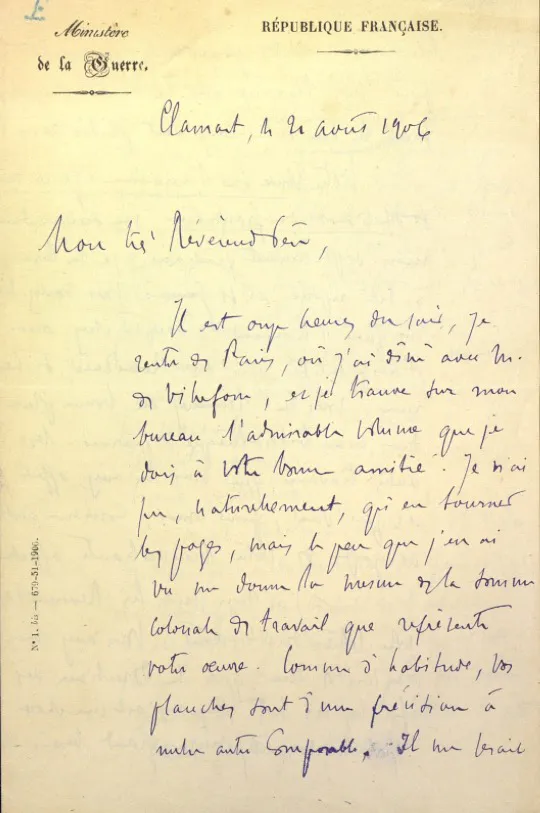 Ministère
de la Guerre.
RÉPUBLIQUE FRANÇAISE.
Clamart, le 21 août 1906
Mon très Révérend Père,
Il est onze heures du soir, je
rentre de Paris, où j'ai dîné avec M.
de Villefosse, et je trouve sur mon
bureau l'admirable volume que je
dois à votre bonne amitié. Je n'ai
pu, naturellement, qu'en tourner
les pages, mais le peu que j'en ai
vu me donne la mesure de la somme
colossale de travail que représente
votre œuvre. Comme d'habitude, vos
planches sont d'une précision à
nulle autre comparable. Il me serait